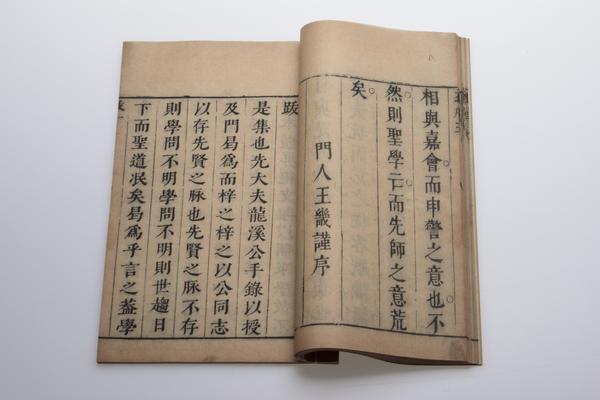 相與嘉會而申警之意也不
然則聖學而先師之意荒
矣
門人王畿謹序
跋
是集也先大夫龍溪公手錄以授
及門曷爲而梓之以公同志
以存先賢之脉也先賢之脉不存
則學問不明學問不明則世趨日
下而聖道泯矣曷爲乎言之葢學